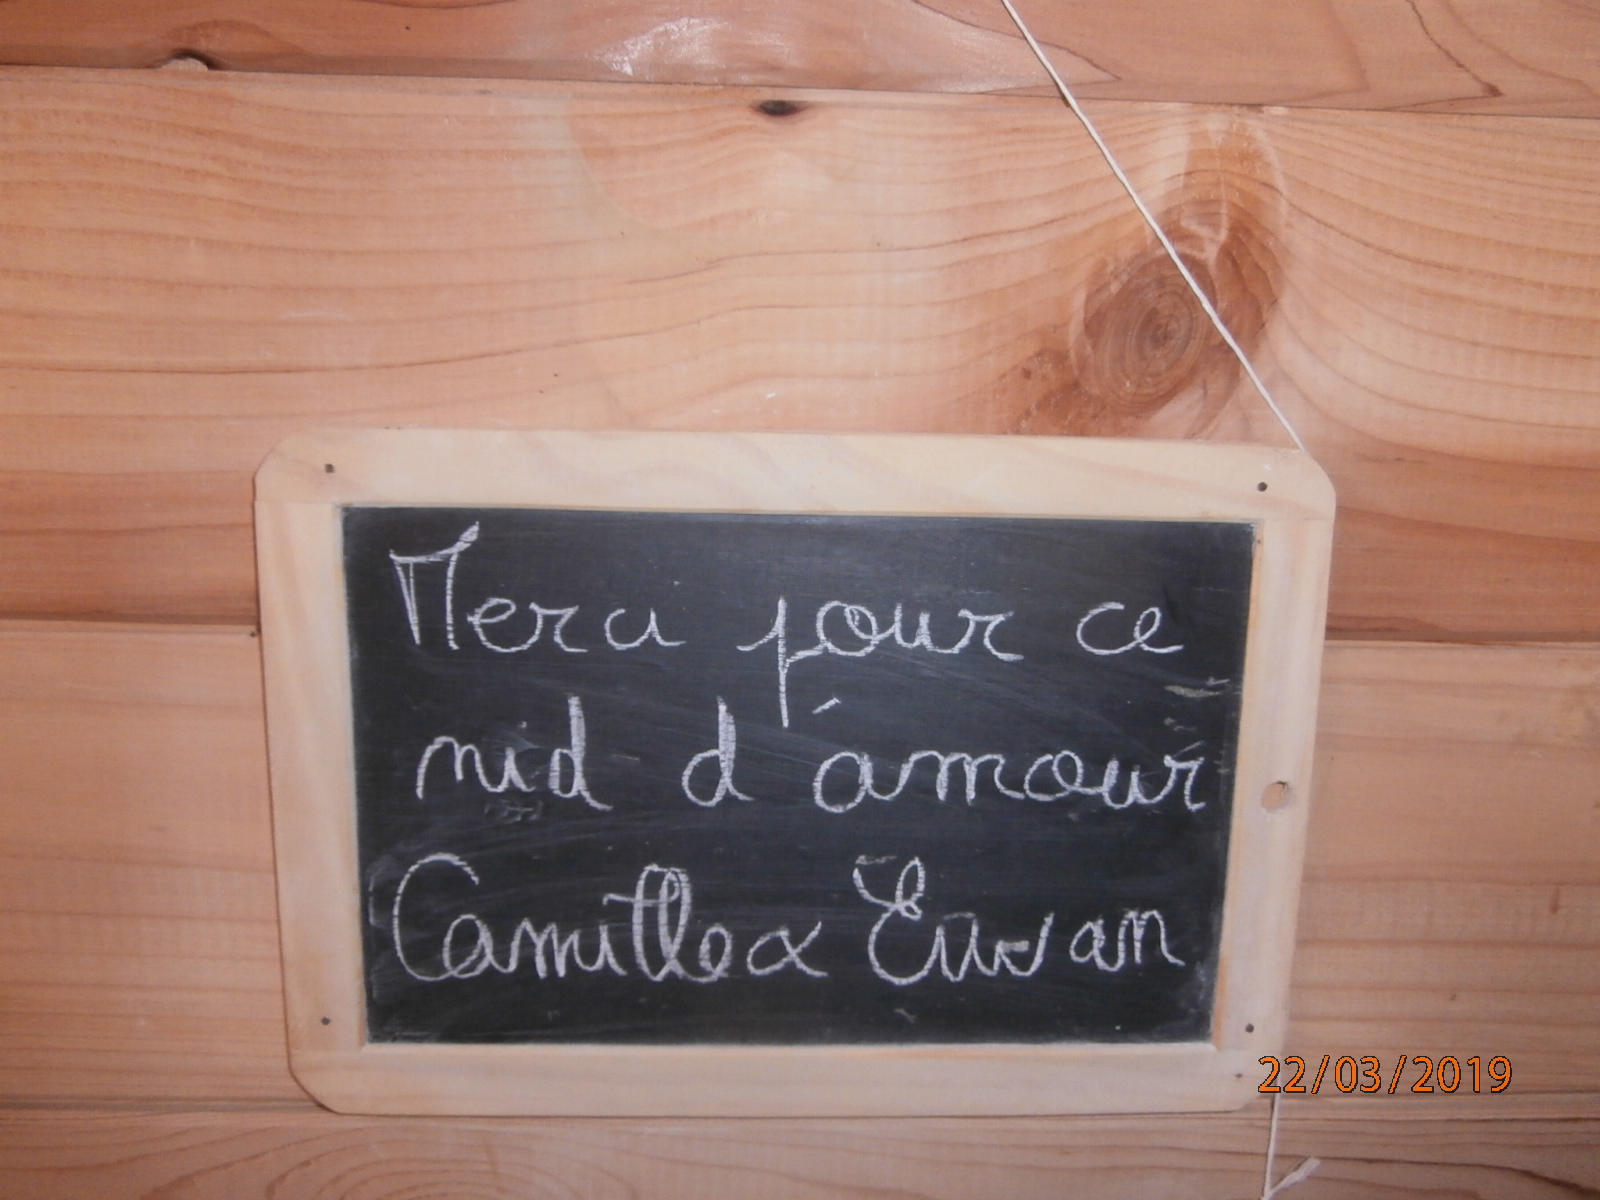 Merci pour ce
nid d'amour
Camille & Erwan
22/03/2019